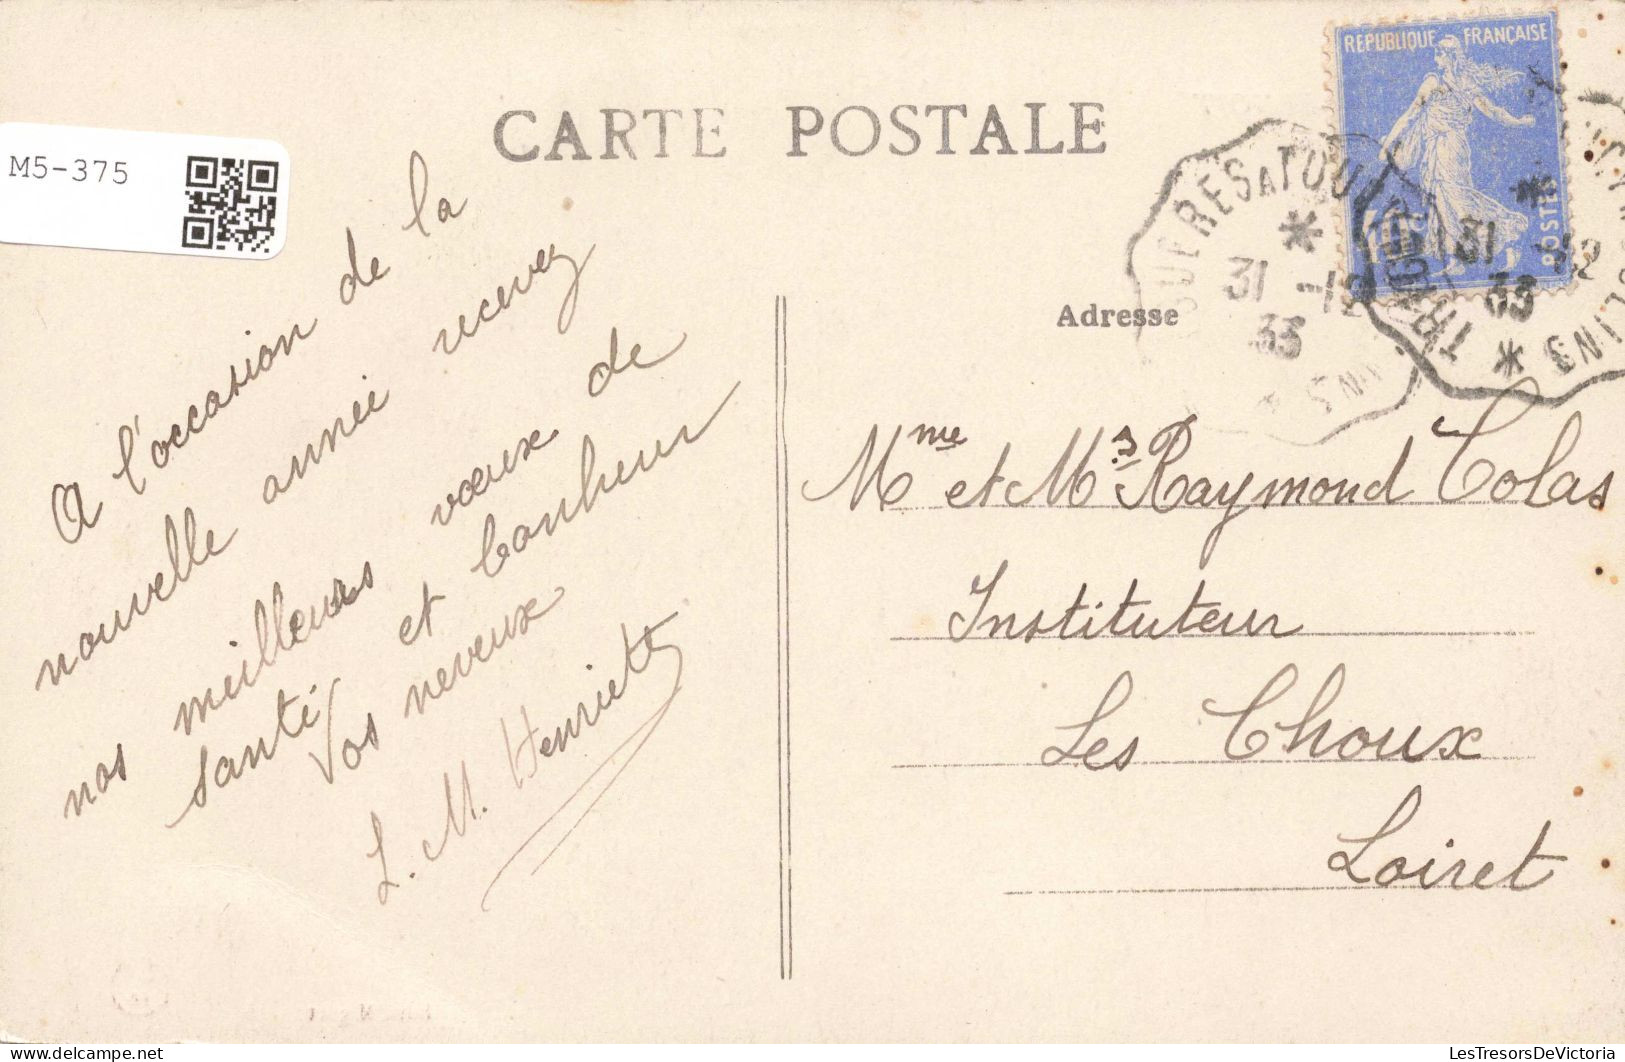 CARTE POSTALE
REPUBLIQUE FRANÇAISE
POSTES
M5-375
A l'occasion de la
nouvelle année recevez
nos meilleurs vœux de
santé et bonheur
Vos neveux
L. M. Henriette
Adresse
31 -12
33
31 12
33
Mme et Mr Raymond Colas
Instituteur
Les Choux
Loiret
LesTresorsDeVictoria